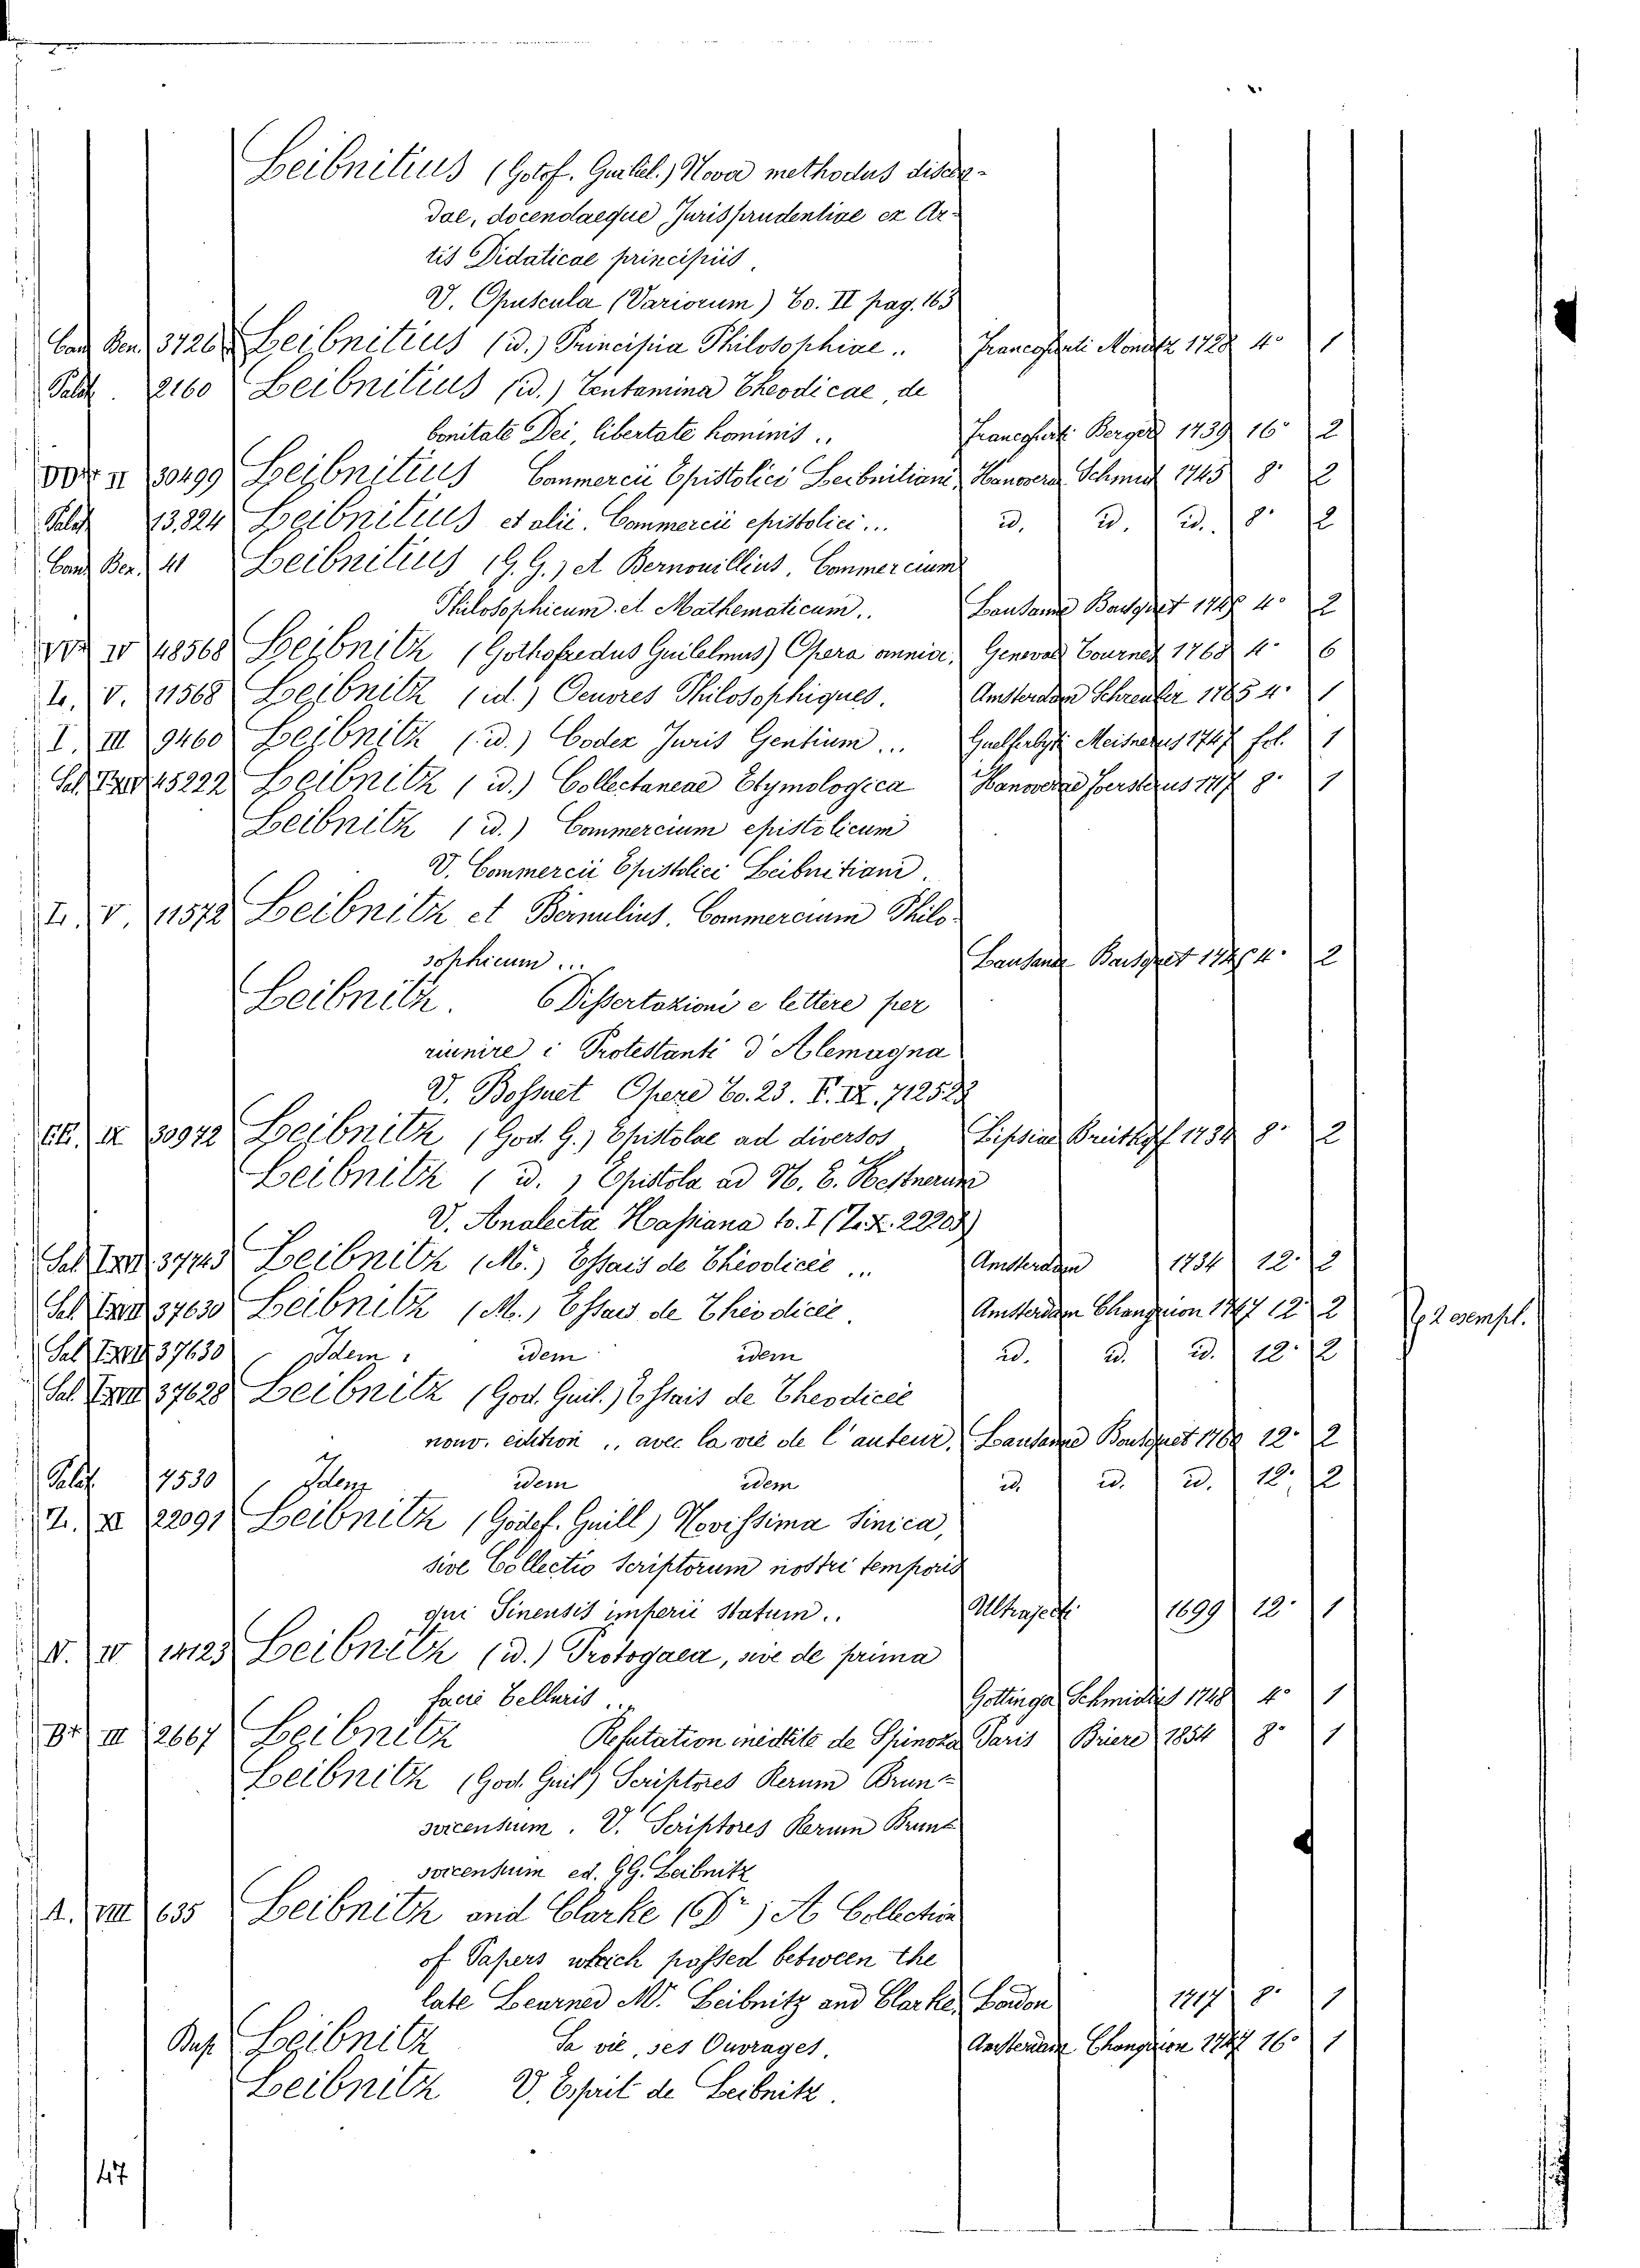 Leibnitius (Gotof. Guilel.) Nova methodus discen-
dae, docendaeque Jurisprudentiae ex Ar-
tis Didaticae principiis.
V. Opuscula (Variorum) to. II pag. 163
3726 Leibnitius (id.) Principia Philosophiae .. 1728 4° 1
Palat. 2160 Leibnitius (id.) Tentamina Theodicae, de
bonitate Dei, libertate hominis .. Francofurti Berger 1739 16° 2
II 30499 Leibnitius Commercii Epistolici Leibnitiani, Hanovera Schmid 1745 8° 2
Palat 13,824 Leibnitius et alii. Commercii epistolici ... id. id. id. 8° 2
41 Leibnitius (G. G.) et Bernouillius, Commercium
Philosophicum et Mathematicum .. Lausanne Bousquet 4° 2
IV 48568 Leibnitz (Gothofredus Guilelmus) Opera omnia, Genevae Tournes 1768 4° 6
L. V. 11568 Leibnitz (id.) Oeuvres Philosophiques. Amsterdam Schreuder 1765 4° 1
I. III 9460 Leibnitz (id.) Codex Juris Gentium ... Guelferbyti Meisnerus 1747 fol. 1
45222 Leibnitz (id.) Collectaneae Etymologica Hanoverae Foersterus 1717 8° 1
Leibnitz (id.) Commercium epistolicum
V. Commercii Epistolici Leibnitiani.
L. V. 11572 Leibnitz et Bernulius. Commercium Philo-
sophicum ... Lausanne Bousquet 4° 2
Leibnitz. 6 Dissertazioni e lettere per
riunire i Protestanti d'Alemagna
V. Bossuet Opere to. 23. F. IX. 712523
IX 30972 Leibnitz (God. G.) Epistolae ad diversos Lipsiae Breitkopf 1734 8° 2
Leibnitz (id.) Epistola ad H. E. Kestnerum
V. Analecta Hassiana to. I (L. X. 22208)
37743 Leibnitz (M.) Essais de Théodicée ... Amsterdam 1734 12° 2
37630 Leibnitz (M.) Essais de Théodicée. Amsterdam Changuion 1747 12 2 2 esempl.
37630 Idem idem idem id. id. id. 12° 2
37628 Leibnitz (God. Guil.) Essais de Theodicée
nouv. edition .. avec la vie de l'auteur, Lausanne Bousquet 1760 12° 2
Palat. 7530 Idem idem idem id. id. id. 12° 2
L. XI 22091 Leibnitz (Godef. Guill) Novissima Sinica,
sive Collectio scriptorum nostri temporis
qui Sinensis imperii statum .. Ultrajecti 1699 12° 1
N. IV 14123 Leibnitz (id.) Protogaea, sive de prima
facie telluris ... Gottinga Schmidius 1748 4° 1
III 2667 Leibnitz Refutation inedtite de Spinoza Paris Briere 1854 8° 1
Leibnitz (God. Guil) Scriptores Rerum Brun-
svicensium. V. Scriptores Rerum Brun-
svicensium ed. GG. Leibnitz
A. VIII 635 Leibnitz and Clarke (Dr) A Collection
of Papers which passed between the
late Learned Mr. Leibnitz and Clarke, London 1717 8° 1
Leibnitz Sa vie, ses Ouvrages. Amsterdam Changuion 1747 16° 1
Leibnitz V. Esprit de Leibnitz.
47